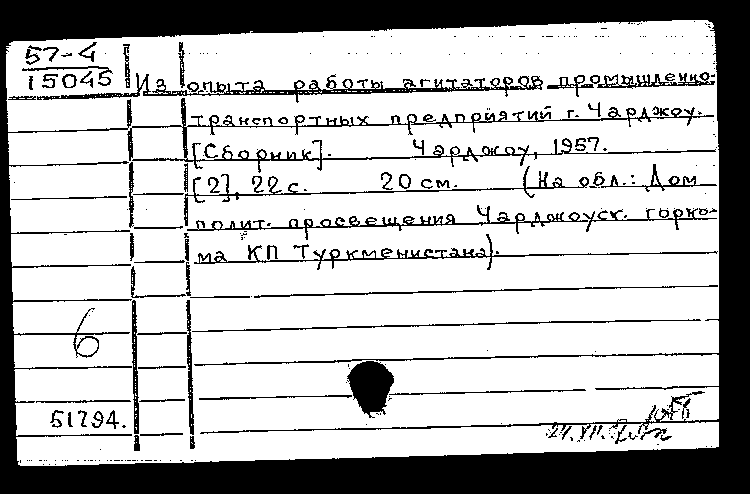 57-4
15045
Из опыта работы агитаторов промышленно-
транспортных предприятий г. Чарджоу.
[Сборник]. Чарджоу, 1957.
[2], 22 с. 20 см. (На обл.: Дом
полит. просвещения Чарджоуск. горко-
ма КП Туркменистана).
6
51794.
24.XII.